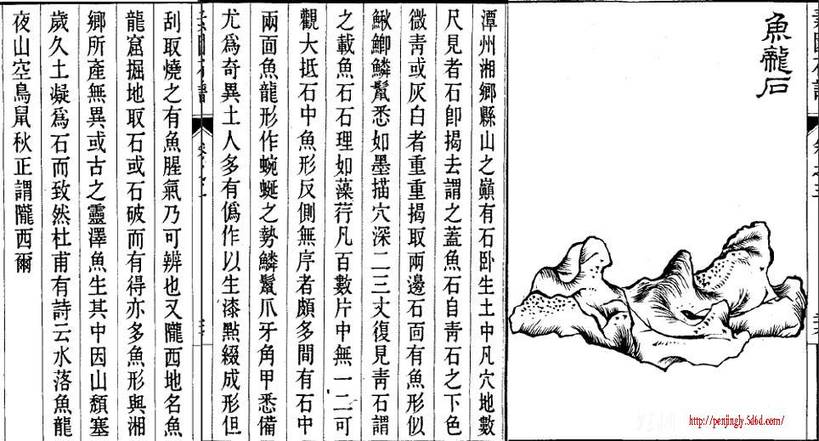 魚龍石
潭州湘鄉縣山之巔有石卧生土中凡穴地數
尺見者石卽揭去謂之蓋魚石自青石之下色
微青或灰白者重重揭取兩邊石面有魚形似
鰍鯽鱗鬣悉如墨描穴深二三丈復見青石謂
之載魚石石理如藻荇凡百數片中無一二可
觀大抵石中魚形反側無序者頗多間有石中
兩面魚龍形作蜿蜒之勢鱗鬣爪牙角甲悉備
尤爲奇異土人多有僞作以生漆點綴成形但
刮取燒之有魚腥氣乃可辨也又隴西地名魚
龍窟掘地取石或石破而有得亦多魚形與湘
鄉所產無異或古之靈澤魚生其中因山頹塞
歲久土凝爲石而致然杜甫有詩云水落魚龍
夜山空鳥鼠秋正謂隴西爾
http://penjingly.5d6d.com/